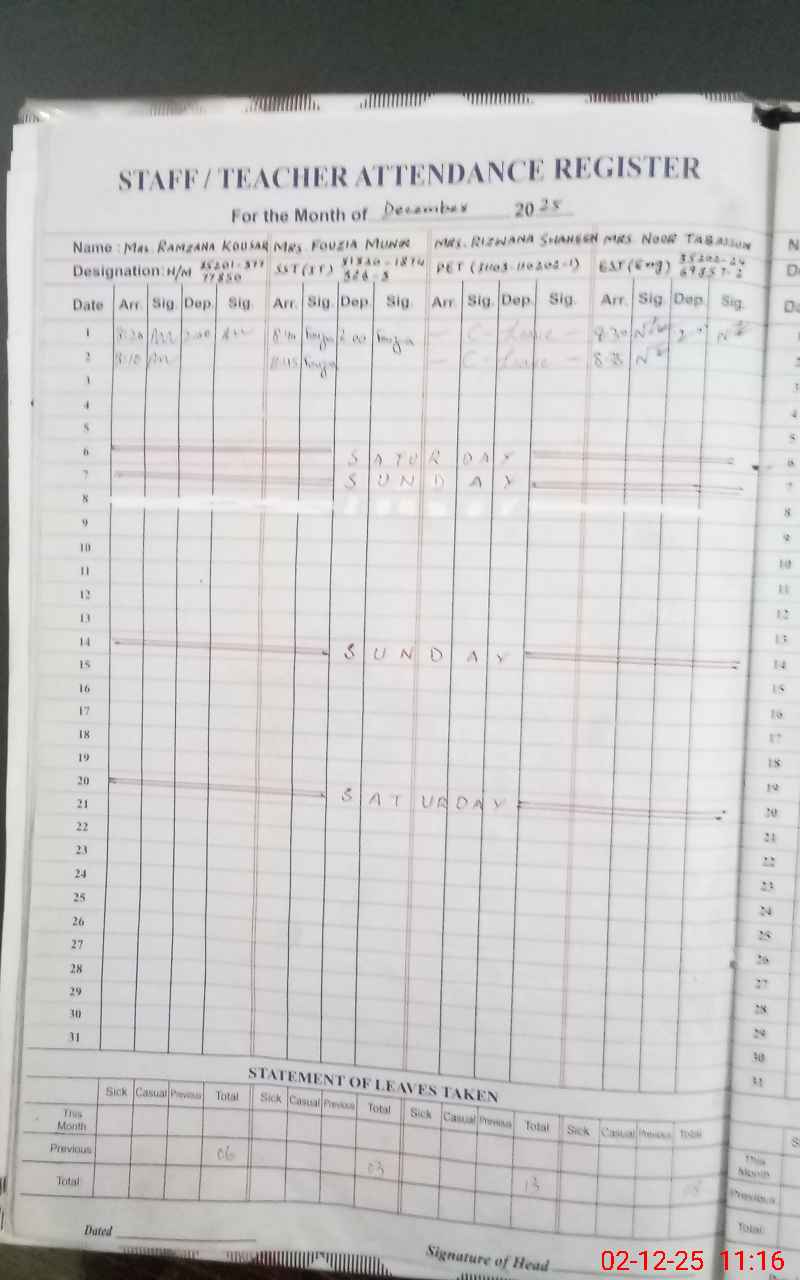 STAFF / TEACHER ATTENDANCE REGISTER
For the Month of December 2025
Name : Mrs. RAMZANA KOUSAR MRS FOUZIA MUNIR MRS. RIZWANA SHAHEEN MRS NOOR TABASSUM N
Designation: H/M 35201-377 SST (IT) PET (31103-110202-1) EST (Eng) 35202-24 D
77850 326-3
Date Arr. Sig. Dep. Sig. Arr. Sig. Dep. Sig. Arr. Sig. Dep. Sig. Arr. Sig. Dep. Sig. Da
1 8:20 2:00 8:40 2:00 - C-Leave - 8:30
2 8:10 8:45 - C-Leave -
3 3
4 4
5 5
6 SATURDAY 6
7 SUNDAY 7
8 8
9 9
10 10
11 11
12 12
13 13
14 SUNDAY 14
15 15
16 16
17 17
18 18
19 19
20 SATURDAY 20
21 21
22 22
23 23
24 24
25 25
26 26
27 27
28 28
29 29
30 30
31 31
STATEMENT OF LEAVES TAKEN
Sick Casual Previous Total Sick Casual Previous Total Sick Casual Previous Total Sick Casual Previous Total S
This Month This Month
Previous 06 03 13 Previous
Total Total
Dated
Signature of Head
02-12-25 11:16